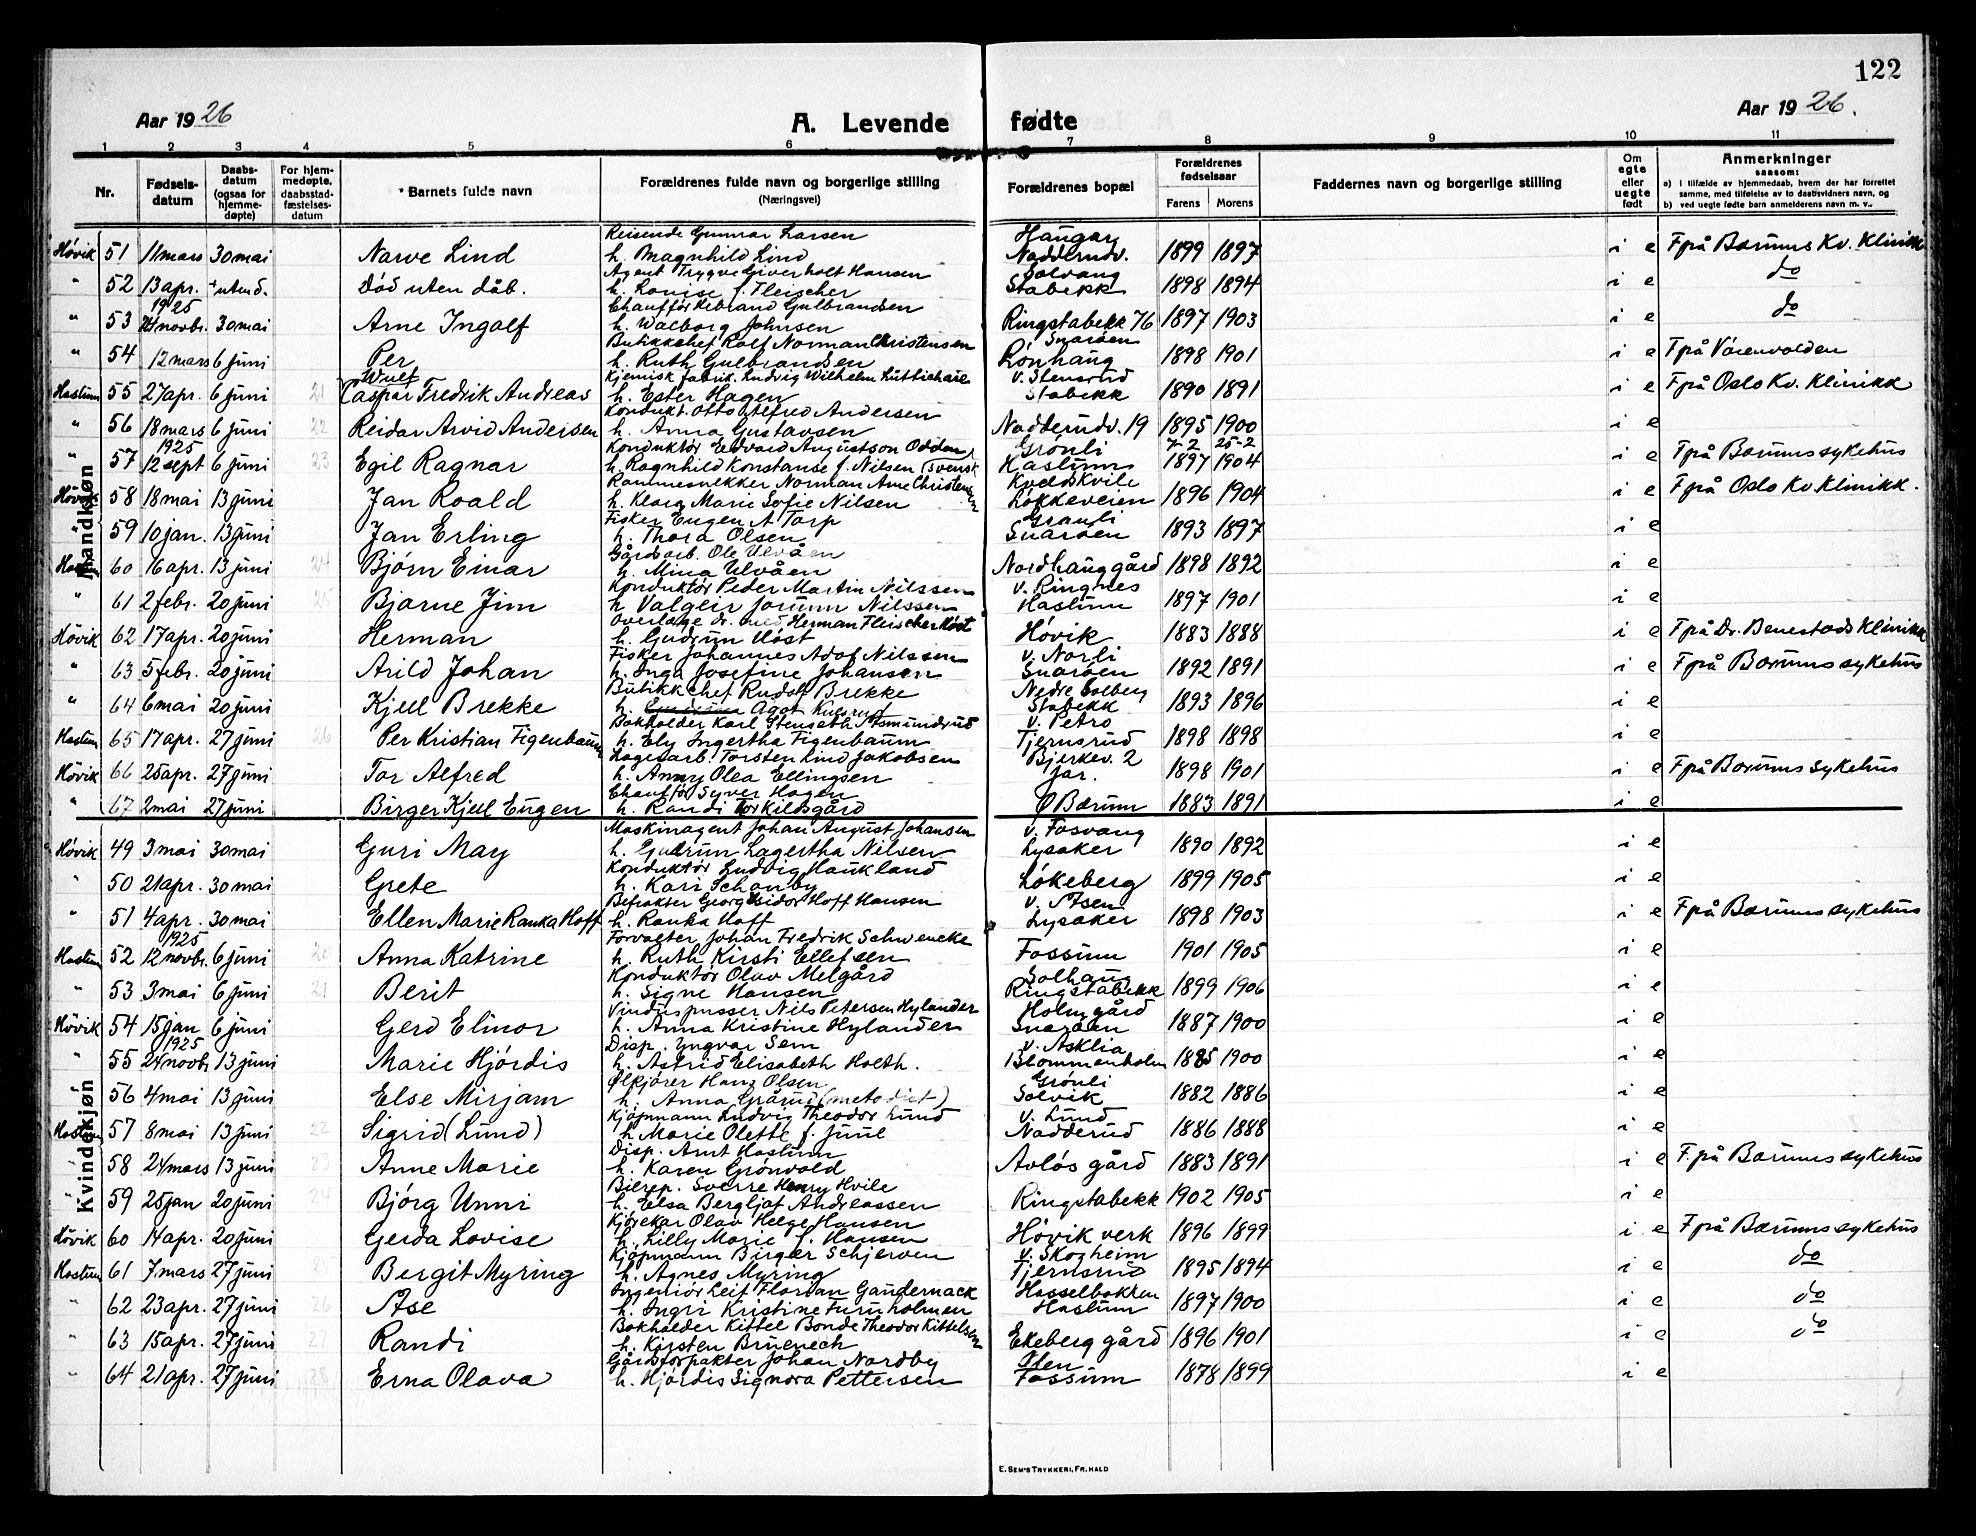 122
Aar 1926
A. Levende fødte
Aar 1926.
1 2 3 4 5 6 7 8 9 10 11
Nr.
Fødsels-datum
Daabs-datum (ogsaa for hjemme-døpte)
For hjem-medøpte, daabsstad-fæstelses-datum
Barnets fulde navn
Forældrenes fulde navn og borgerlige stilling (Næringsvei)
Forældrenes bopæl
Forældrenes fødselsaar
Farens Morens
Faddernes navn og borgerlige stilling
Om egte eller uegte født
Anmerkninger
saasom:
a) I tilfælde av hjemmedaab, hvem der har forrettet samme, med tilføielse av to daabsvidners navn, og
b) ved uegte fødte barn anmelderens navn m. v..
Mandkjøn
Reisende Gunnar Larsen Haugar
Høvik 51 11 mars 30 mai Narve Lind h. Magnhild Lind Nadderudv. 1899 1897 i e F på Bærums Kv. Klinikk
Agent Trygve Hansen Solvang
" 52 13 apr. + uten d. Død uten dåb. h. Louise f. Fleischer Stabekk 1898 1894 i e do
1925 Chauffør Gulbrandsen
" 53 24 novbr. 30 mai Arne Ingolf h. Walborg Johnsen Ringstabekk 76 1897 1903 i e do
Butikkchef Rolf Norman Christensen Snarøen
" 54 12 mars 6 juni Per h. Ruth Gulbrandsen Lønhaug 1898 1901 i e F på
Wulf Kjemisk fabrik. Ludvig Wilhelm v. Stensrud
Haslum 55 27 apr. 6 juni 21 Caspar Fredrik Andreas h. Ester Hagen Stabekk 1890 1891 i e F på Oslo Kv. Klinikk
Kondukt. Otto Andersen
" 56 18 mars 6 juni 22 Reidar Arvid Andersen h. Anna Gustavsen Nadderudv. 19 1895 1900 i e
1925 Konduktør Edvard Augustson Odden Grønli 7-2 25-2
" 57 12 sept 6 juni 23 Egil Ragnar h. Ragnhild Konstanse f. Nilsen (svensk Haslum 1897 1904 i e F på Bærums sykehus
Rammesnekker Norman Arne Christensen Kveldskvile
Høvik 58 18 mai 13 juni Jan Roald h. Klara Marie Sofie Nilsen Løkkeveien 1896 1904 i e F på Oslo Kv Klinikk.
Fisker Eugen A Torp Granli
" 59 10 jan. 13 juni Jan Erling h. Thora Olsen Snarøen 1893 1897 i e
Gårdsarb. Ole Ulvåen
Haslum 60 16 apr. 13 juni 24 Bjørn Einar h. Mina Ulvåen Nordhaug gård 1898 1892 i e
Konduktør Peder Martin Nilssen v. Ringnes
" 61 2 febr. 20 juni 25 Bjarne Jim h Valgeir Jorunn Nilssen Haslum 1897 1901 i e
Overlæge dr. med Herman Fleischer Høst
Høvik 62 17 apr. 20 juni Herman h. Gudrun Høst Høvik 1883 1888 i e F på Dr. Benestads Klinikk
Fisker Johannes Adof Nilssen v. Norli
" 63 5 febr. 20 juni Arild Johan h. Inga Josefine Johansen Snarøen 1892 1891 i e F på Bærums sykehus
Butikkchef Rudolf Brekke Nedre Solberg
" 64 6 mai 20 juni Kjell Brekke h. Agot Kulsrud Stabekk 1893 1896 i e
Bokholder Karl Stenseth Åsmundrud v. Petro
Haslum 65 17 apr. 27 juni 26 Per Kristian Figenbaum h. Ely Ingertha Figenbaum Tjernsrud 1898 1898 i e
Lagerarb. Torsten Lind Jakobsen Bjerkev. 2
Høvik 66 25 apr. 27 juni Tor Alfred h. Anny Olea Ellingsen Jar. 1898 1901 i e F på Bærums sykehus
Chauffør Syver Hagen
" 67 2 mai 27 juni Birger Kjell Eugen h. Randi Torkildsgård Ø Bærum 1883 1891 i e
Kvindekjøn
Maskinagent Johan August Johansen v. Fosvang
Høvik 49 3 mai 30 mai Guri May h. Gudrun Lagertha Nilsen Lysaker 1890 1892 i e
Konduktør Ludvig Haukland
" 50 21 apr. 30 mai Grete h. Kari Schanby Løkeberg 1899 1905 i e
Befrakter Georg Isidor Hoff Hansen v. Åsen
" 51 4 apr. 30 mai Ellen Marie Ranka Hoff h. Ranka Hoff Lysaker 1898 1903 i e F på Bærums sykehus
1925 Forvalter Johan Fredrik Schwencke
Haslum 52 12 novbr. 6 juni 20 Anna Katrine h. Ruth Kirsti Ellefsen Fossum 1901 1905 i e
Konduktør Olav Melgård Solhaug
" 53 3 mai 6 juni 21 Berit h. Signe Hansen Ringstabekk 1899 1906 i e
Vinduspusser Nils Petersen Hylander Holmgård
Høvik 54 15 jan 6 juni Gerd Elinor h. Anna Kristine Hylander Snarøen 1887 1900 i e
1925 Disp. Yngvar Sem v. Asklia
" 55 24 novbr 13 juni Marie Hjørdis h. Astrid Elisabeth Holth. Blommenholm 1885 1900 i e
Ølkjører Hans Olsen Grønli
" 56 4 mai 13 juni Else Mirjam h. Anna Grårud (metodist) Solvik 1882 1886 i e
Kjøpmann Ludvig Theodor Lund v. Lund
Haslum 57 8 mai 13 juni 22 Sigrid (Lund) h Marie Olette f. Juul Nadderud 1886 1888 i e
Disp. Arnt Haslum
" 58 24 mars 13 juni 23 Anne Marie h. Karen Grønvold Avløs gård 1883 1891 i e F. på Bærums sykehus
Bilrep. Sverre Henry Hvile
" 59 25 jan 20 juni 24 Bjørg Unni h. Elsa Bergljot Andreassen Ringstabekk 1902 1905 i e
Kjørekar Olav Helge Hansen
Høvik 60 14 apr. 20 juni Gerda Lovise h. Lilly Marie f. Hansen Høvik verk 1896 1899 i e F på Bærums sykehus
Kjøpmann Birger Schjerven v. Skogheim
Haslum 61 7 mars 27 juni Bergit Myring h. Agnes Myring Tjernsrud 1895 1894 i e do
Ingeniør Leif Florian Gaudernack Hasselbakken
" 62 23 apr. 27 juni 26 Åse h. Ingri Kristine Furuholmen Haslum 1897 1900 i e do
Bokholder Kittel Bonde Theodor Kittelsen
" 63 15 apr. 27 juni 27 Randi h. Kirsten Bruenech Ekeberg gård 1896 1901 i e do
Gårdsforpakter Johan Nordby Ølen
" 64 21 apr. 27 juni 28 Erna Olava h. Hjørdis Signora Pettersen Fossum 1878 1899 i e
E. Sem's Trykkeri, Fr.hald